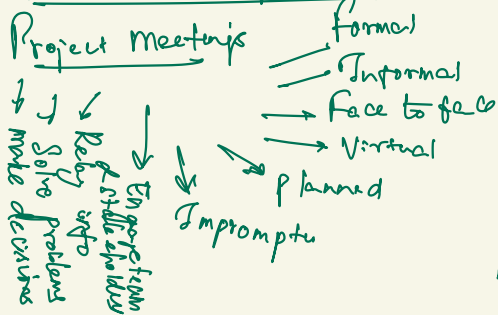 Project Meetings
Formal
Informal
Face to face
Virtual
Planned
Impromptu
Engage team
& stakeholders
Relay info
Solve problems
make decisions